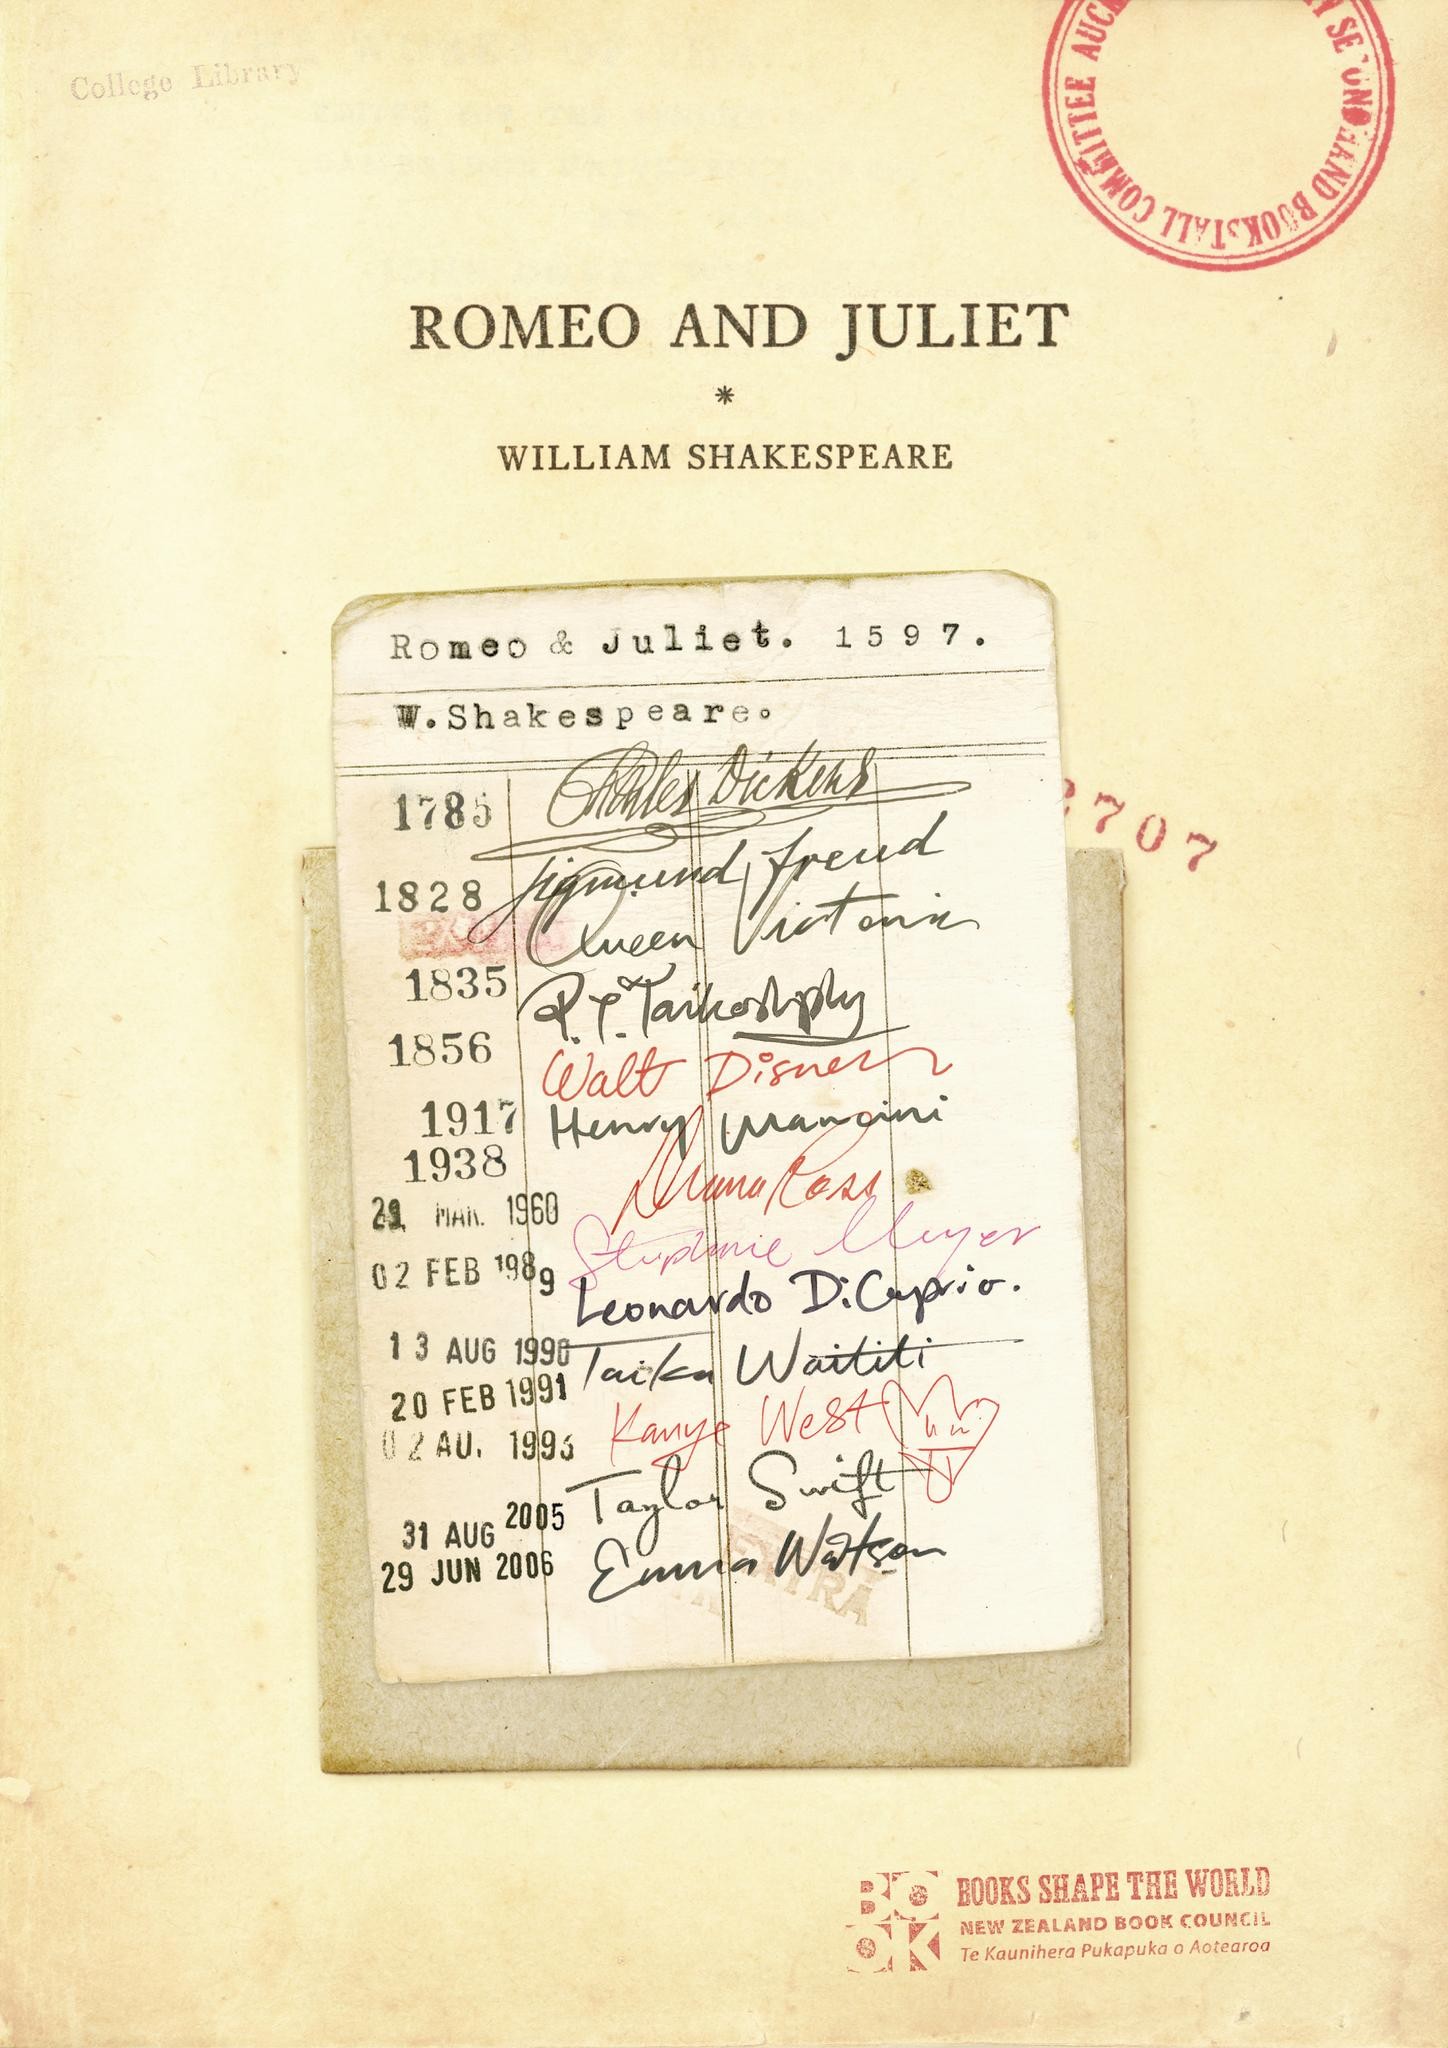 College Library
COMMITTEE
BOOKSTALL
ROMEO AND JULIET
*
WILLIAM SHAKESPEARE
Romeo & Juliet. 1597.
W.Shakespeare.
1785 Charles Dickens
1828 Sigmund Freud
Queen Victoria
1835
1856
Walt Disney
1917 Henry Mancini
1938 Diana Ross
MAR. 1960
Stephanie Meyer
02 FEB 1989 Leonardo DiCaprio.
13 AUG 1990 Taika Waititi
20 FEB 1991 Kanye West
02 AU. 1993
Taylor Swift
31 AUG 2005
29 JUN 2006 Emma Watson
707
BOOK
BOOKS SHAPE THE WORLD
NEW ZEALAND BOOK COUNCIL
Te Kaunihera Pukapuka o Aotearoa